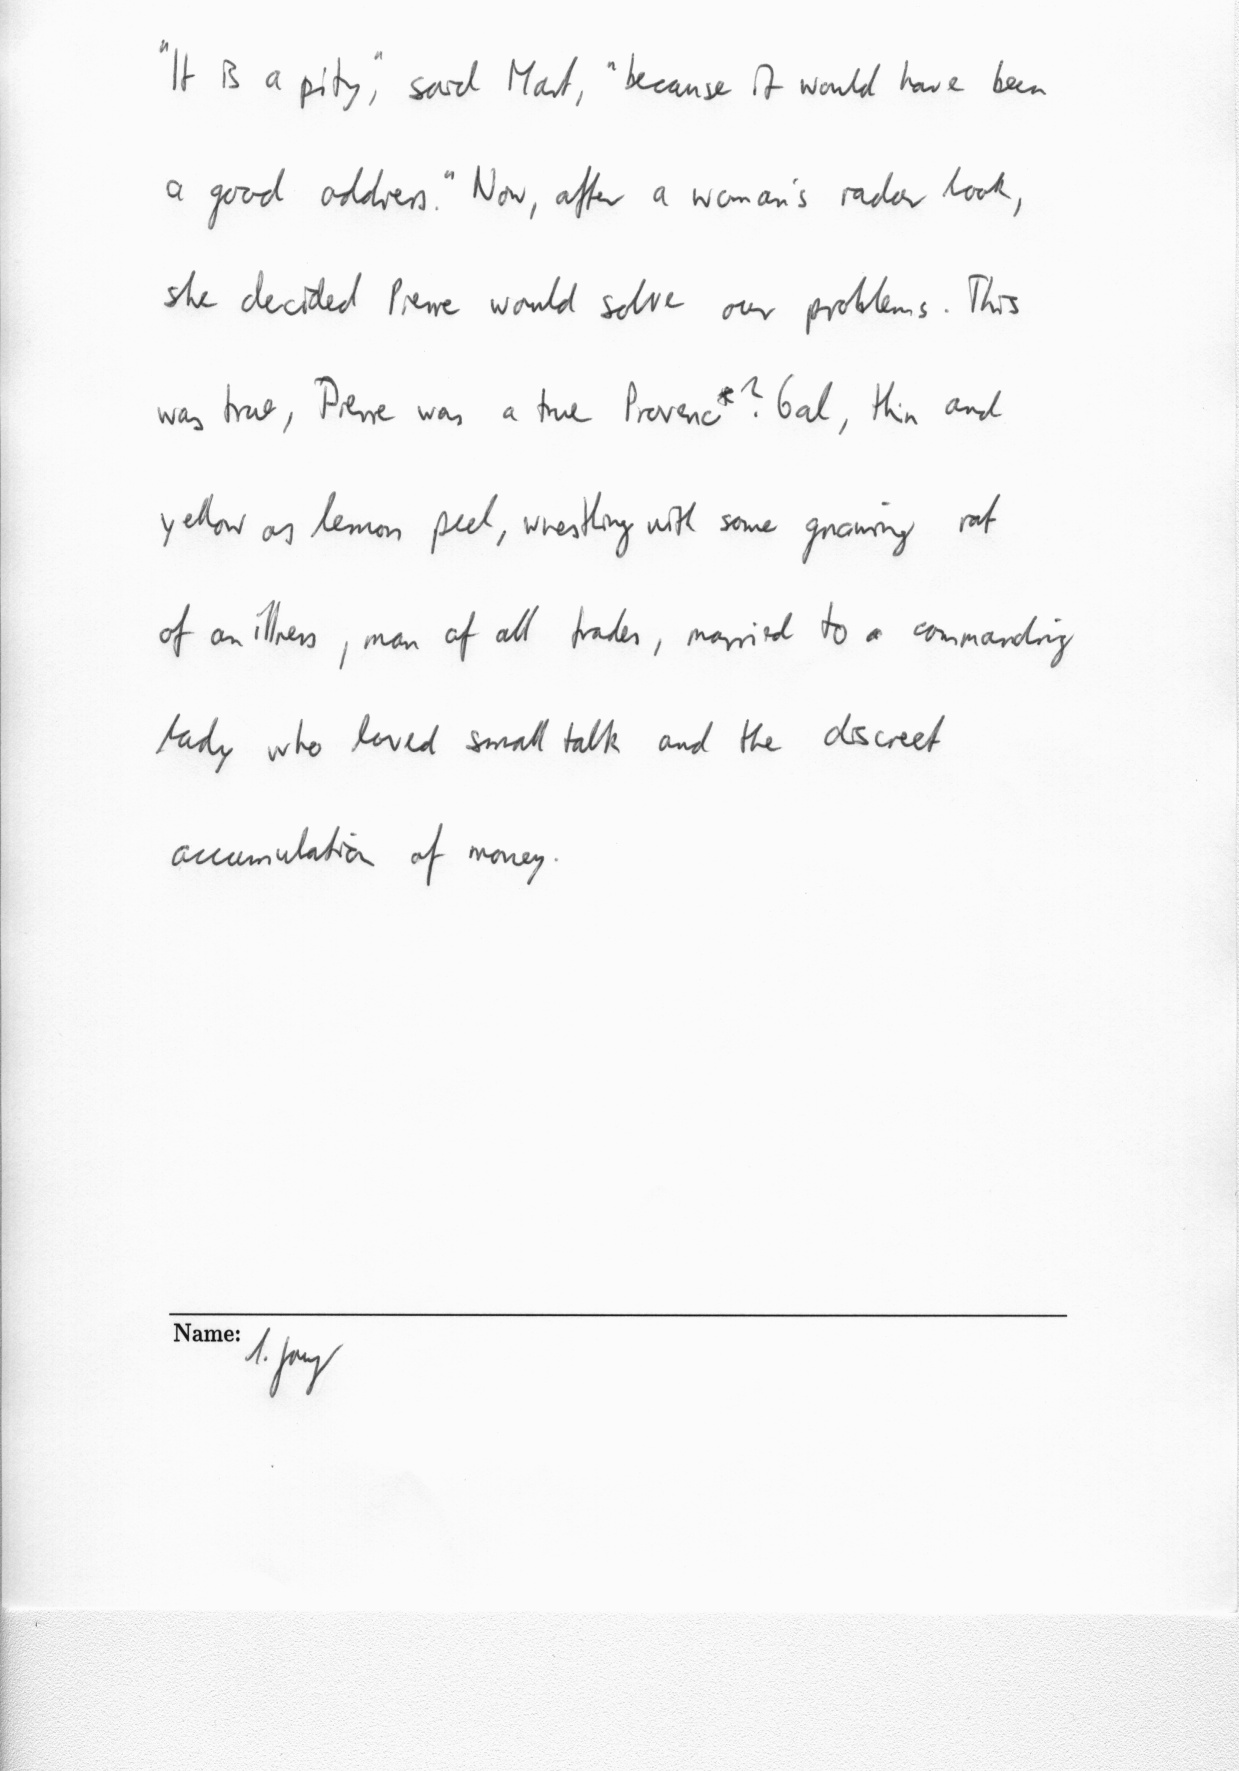 "It is a pity," said Mart, "because it would have been
a good address." Now, after a woman's radar look,
she decided Pierre would solve our problems. This
was true, Pierre was a true Provenc*?6al, thin and
yellow as lemon peel, wrestling with some gnawing rat
of an illness, man of all trades, married to a commanding
lady who loved small talk and the discreet
accumulation of money.
Name: